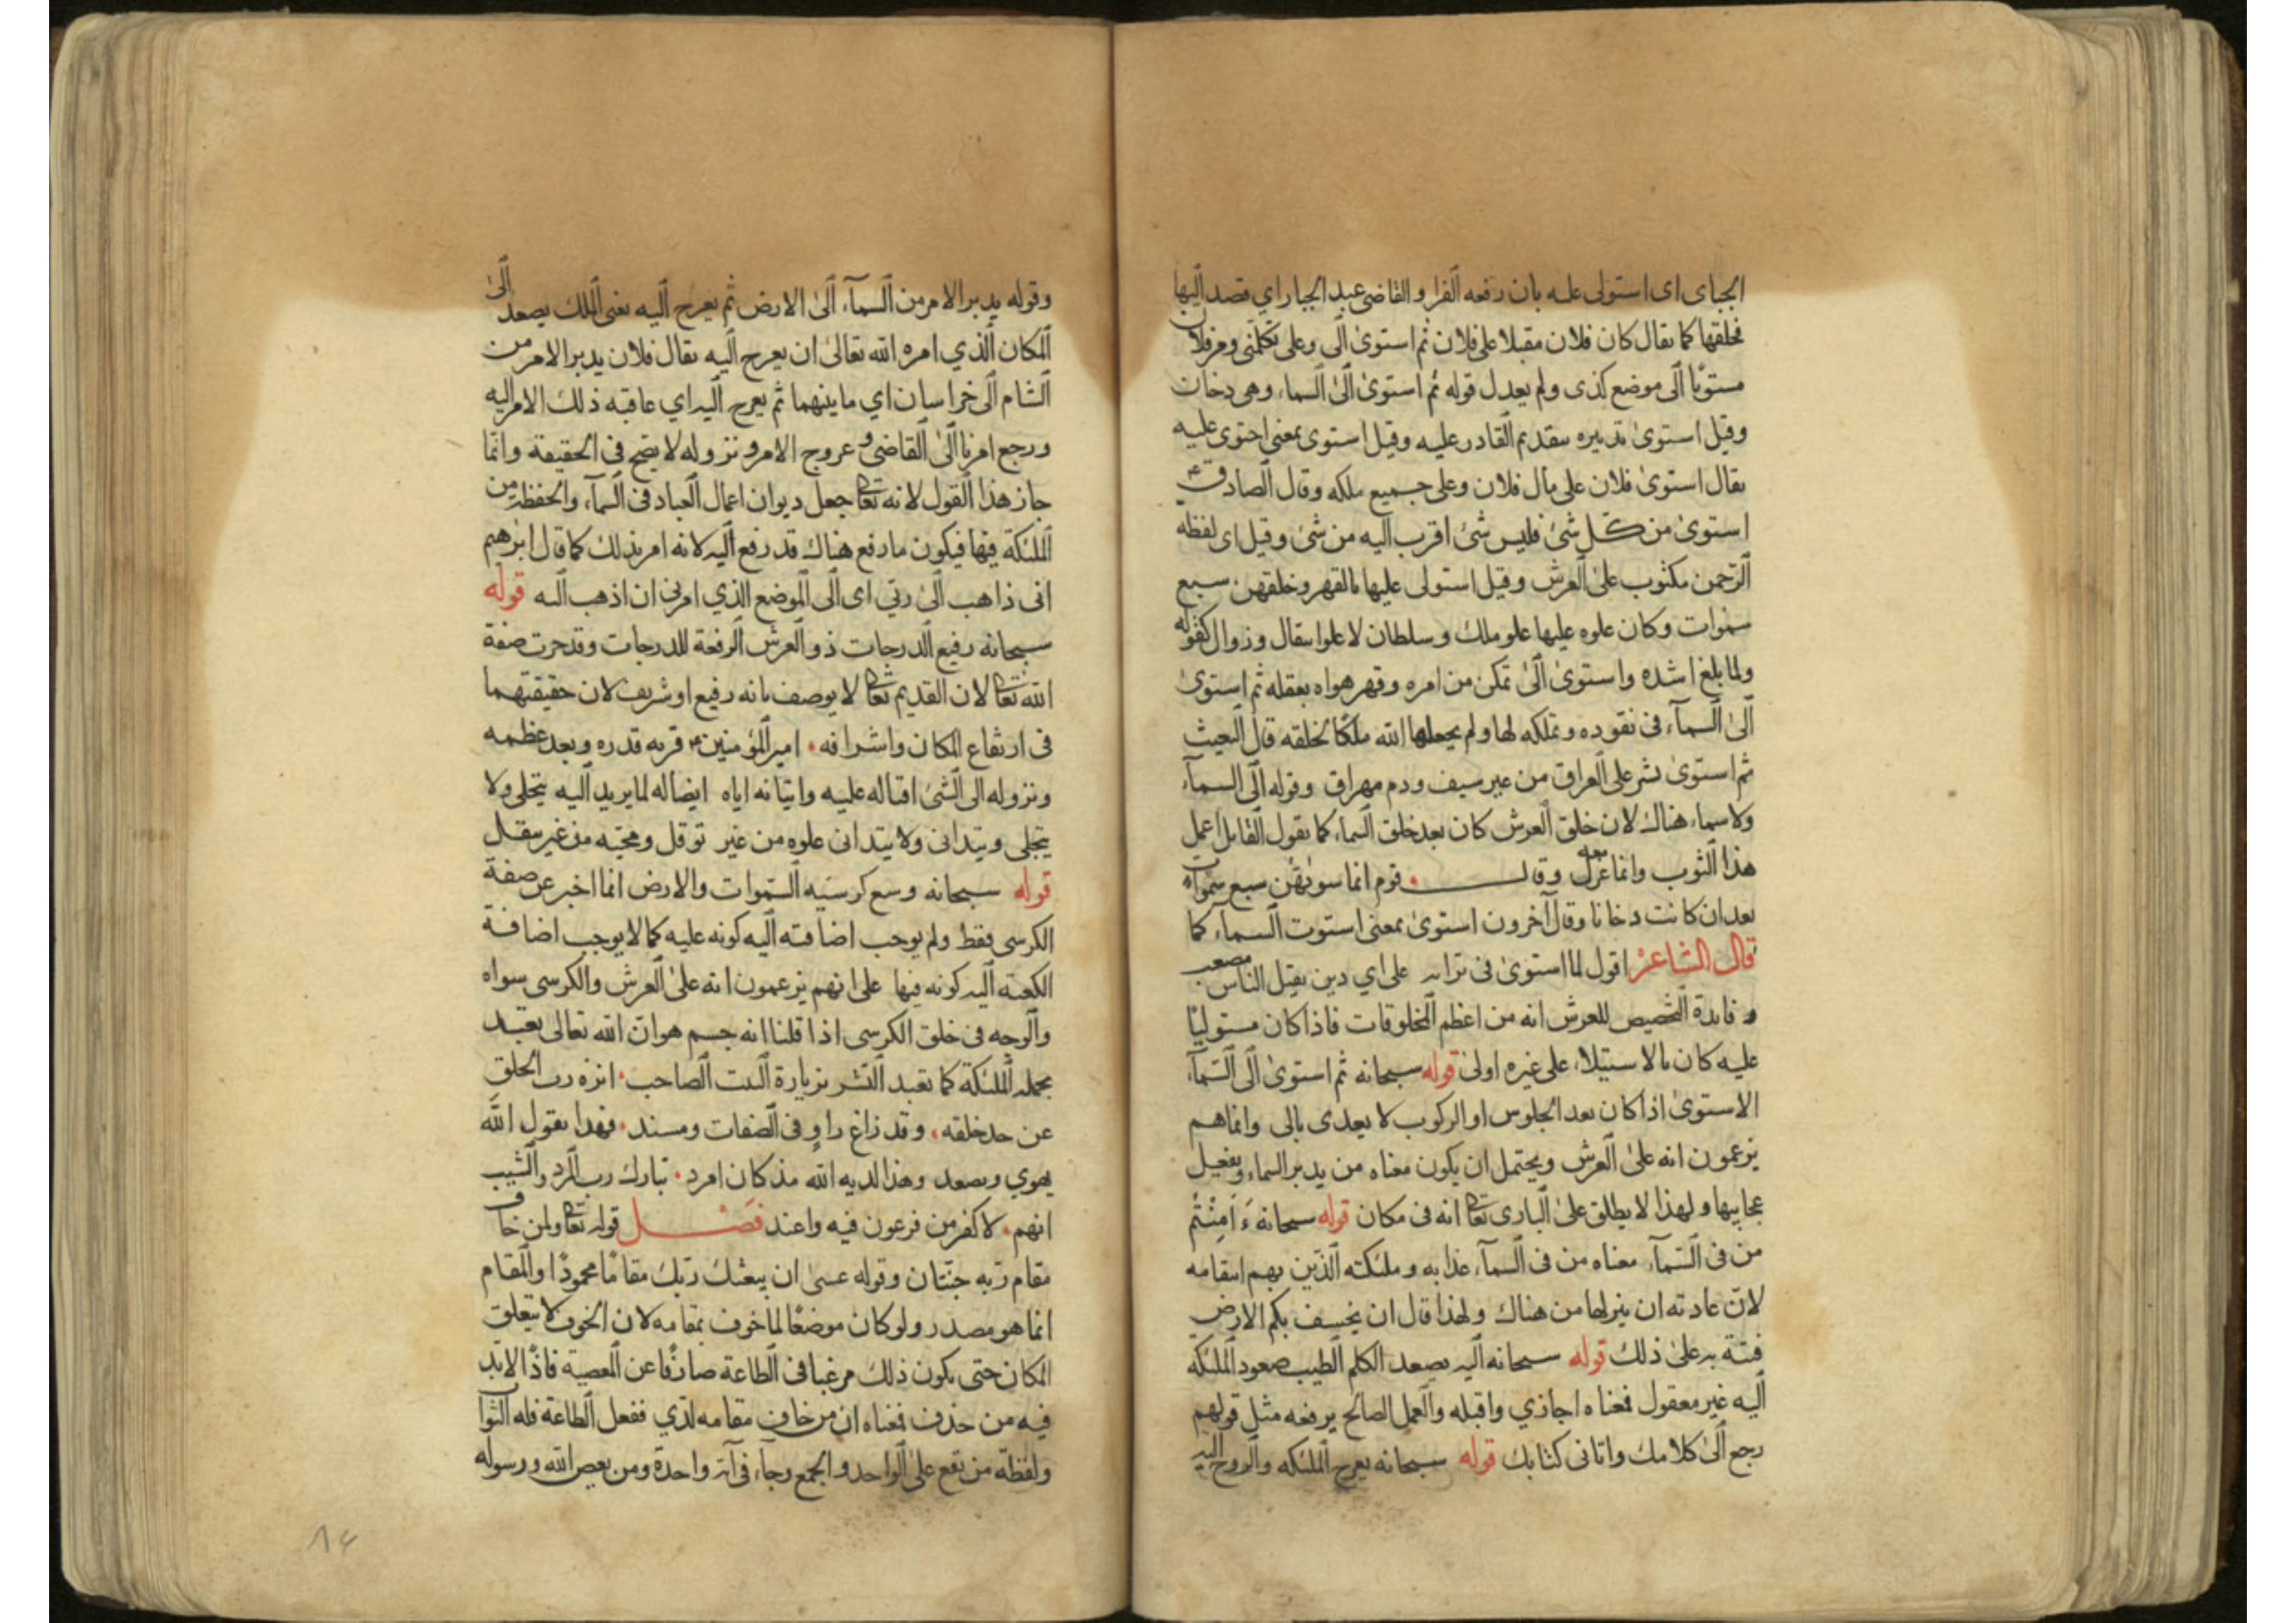 الجباى اى استولى عليه بان رفعه الفرا و القاضى عبد الجبار اي قصد اليها
فخلقها كما يقال كان فلان مقبلا على فلان ثم استوىٰ الى وعلى تكلمنى ومر فلان
مستويا الى موضع كذى ولم يعدل قوله ثم استوىٰ الىٰ السماء وهى دخان
وقيل استوىٰ تدبيره بتقديم القادر عليه وقيل استوى بمعنى احتوى عليه
يقال استوىٰ فلان على مال فلان وعلى جميع ملكه وقال الصادق ع
استوىٰ من كل شئ فليس شئ اقرب اليه من شئ وقيل اى لفظة
الرحمن مكتوب علىٰ العرش وقيل استولى عليها بالقهر وخلقهن سبع
سموات وكان علوه عليها علو ملك وسلطان لا علو انتقال وزوال كقوله
ولما بلغ اشده واستوىٰ الىٰ تمكن من امره وقهر هواه بعقله ثم استوىٰ
الىٰ السمآء فى نفوده وتملكه لها ولم يجعلها الله ملكا لخلقه قال البعيث
ثم استوىٰ بشر على العراق من غير سيف ودم مهراق وقوله الى السمآء
ولا سماء هناك لان خلق العرش كان بعد خلق السماء كما يقول القايل اعمل
هذا الثوب وانما معه غزل وقال قوم انما سويٰهن سبع سموات
بعد ان كانت دخانا وقال آخرون استوىٰ بمعنى استوت السمآء كما
قال الشاعر اقول لما استوىٰ فى ترابه على اي دين يقبل الناس مصعب
و فايدة التخصيص للعرش انه من اعظم المخلوقات فاذا كان مستوليًا
عليه كان بالاستيلاء على غيره اولىٰ قوله سبحانه ثم استوىٰ الى السمآء
الاستوىٰ اذا كان بعد الجلوس او الركوب لا يعدى بالى وانما هم
يزعمون انه علىٰ العرش ويحتمل ان يكون معناه من يدبر السماء ويفعل
عجايبها ولهذا لا يطلق علىٰ البارى تعا انه فى مكان قوله سبحانه ءَاَمِنْتُم
من فى السمآء معناه من فى السمآء عذابه وملئكته الذين بهم انتقامه
لان عادته ان ينزلها من هناك ولهذا قال ان يخسف بكم الارض
فتبة به علىٰ ذلك قوله سبحانه اليه يصعد الكلم الطيب صعود الملئكة
اليه غير معقول فمعناه اجازي واقبله والعمل الصالح يرفعه مثل قولهم
رجع الىٰ كلامك واتانى كتابك قوله سبحانه يعرج الملئكه والروح اليه
وقوله يدبر الامر من السمآء الىٰ الارض ثم يعرج اليه يعنى الملك يصعد الىٰ
المكان الذي امره الله تعالىٰ ان يعرج اليه يقال فلان يدبر الامر من
الشام الى خراسان اي ما بينهما ثم يعرج اليه اي عاقبه ذلك الامر اليه
ورجع امرنا الىٰ القاضى و عروج الامر و نزوله لا يصح فى الحقيقة وانما
جاز هذا القول لانه تعا جعل ديوان اعمال العباد فى السمآء والحفظة من
الملئكة فيها فيكون ما رفع هناك قد رفع اليه لانه امر بذلك كما قال ابرٰهيم
انى ذاهب الىٰ ربي اى الى الموضع الذي امرنى ان اذهب اليه قوله
سبحانه رفيع الدرجات ذو العرش الرفعة للدرجات وقد جرت صفة
الله تعا لان القديم تعا لا يوصف بانه رفيع او شريف لان حقيقتهما
فى ارتفاع المكان واشرافه امير المؤمنين ع قربه قدره وبعد عظمه
ونزوله الى الشئ اقباله عليه واتيانه اياه ايصاله لما يريد اليه يتجلى ولا
يتجلى ويتدانى ولا يتدانى علوه من غير توقل ومجيّه من غير تنقل
قوله سبحانه وسع كرسيه السموات والارض انما اخبر عن صفة
الكرسى فقط ولم يوجب اضافته اليه كونه عليه كما لا يوجب اضافة
الكعبة اليه كونه فيها على انهم يزعمون انه علىٰ العرش والكرسى سواه
والوجه فى خلق الكرسى اذا قلنا انه جسم هو ان الله تعالى تعبد
بجمله الملئكة كما تعبد البشر بزيارة البيت الصاحب انزه رب الخلق
عن حد خلقه وقد زاغ راوٍ فى الصفات ومسند فهذا يقول الله
يهوي ويصعد وهذا لديه الله مذ كان امرد تبارك رب المرد والشيب
انهم لاكفر من فرعون فيه واعند فصل قوله تعا ولمن خاف
مقام ربه جنتان وقوله عسىٰ ان يبعثك ربك مقامًا محمودًا والمقام
انما هو مصدر ولو كان موضعًا لما خوف بمقامه لان الخوف لا يتعلق
المكان حتى يكون ذلك مرغبا فى الطاعة صارفًا عن المعصية فاذًا لابد
فيه من حذف فمعناه ان من خاف مقامه لدي ففعل الطاعة فله الثواب
ولفظة من تقع علىٰ الواحد والجمع وجآء فى آية واحدة ومن يعص الله ورسوله